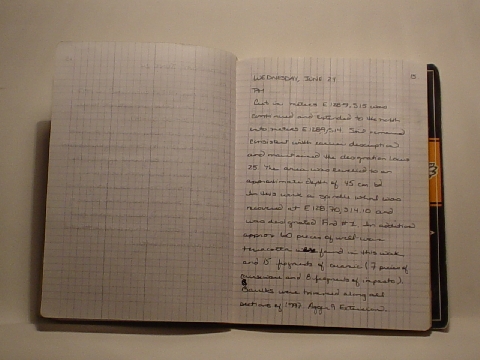 WEDNESDAY, JUNE 24
PM
Cut in meters E 1289, S15 was
continued and extended to the north
into meters E1289/S14. Soil remained
consistent with earlier description
and maintained the designation
25. The area was leveled to an
approximate depth of 45 cm bd
In this work a spindle whorl was
recovered at E 128.70, S14.10 and
was designated Find #2. In addition
approx 60 pieces of were
found in this work
and 15 fragments of ceramic (7 pieces of
and 8 fragments of impasto).
were along all
sections of 1997. Extension.